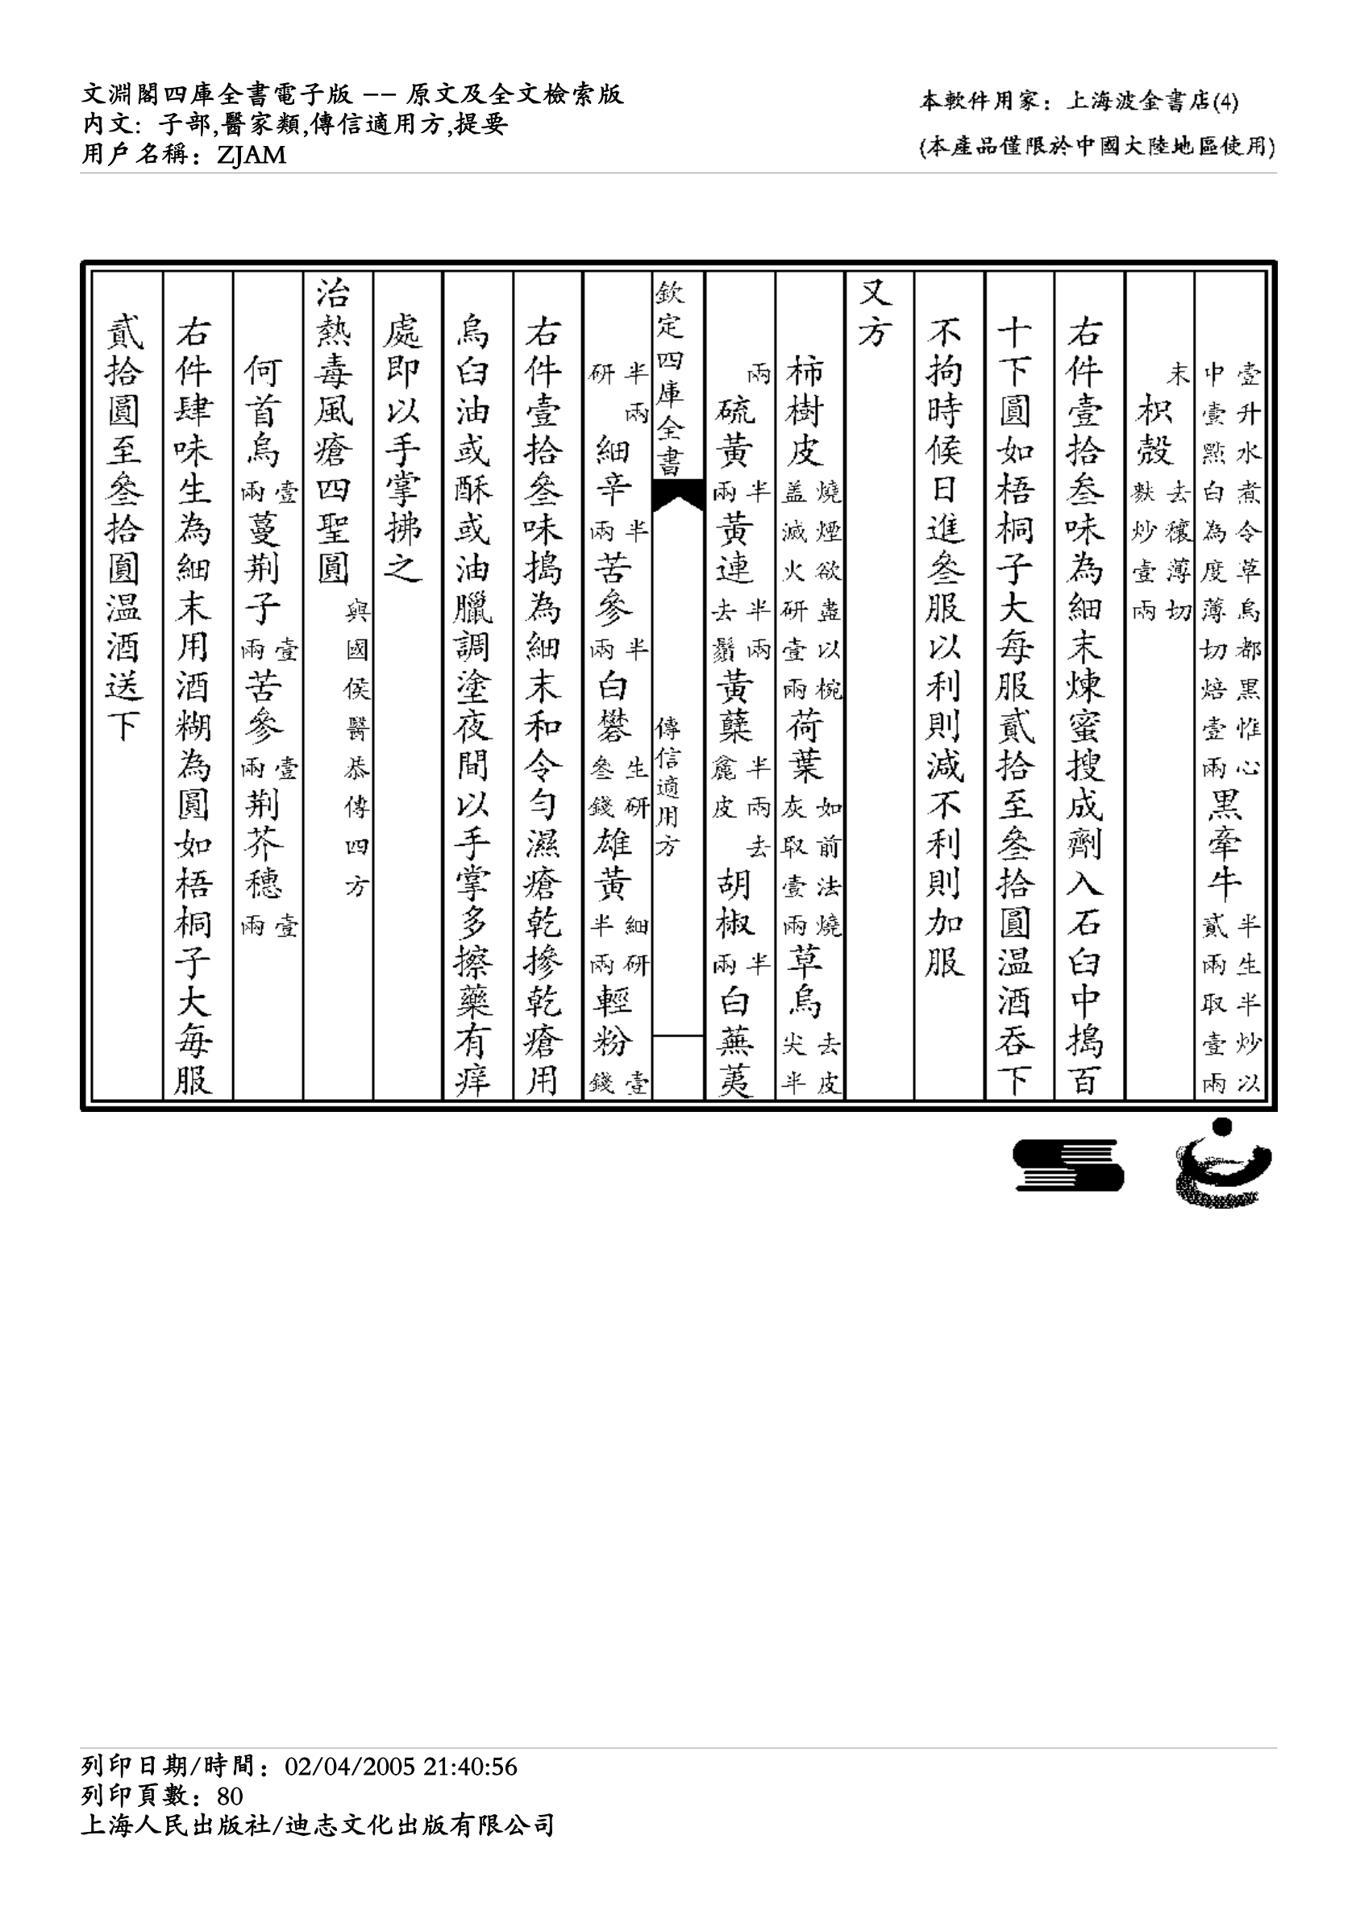 文淵閣四庫全書電子版 -- 原文及全文檢索版
內文: 子部,醫家類,傳信適用方,提要
用戶名稱: ZJAM
本軟件用家: 上海波金書店(4)
(本產品僅限於中國大陸地區使用)
壹升水煮令草烏都黑惟心中壹㸃白為度薄切焙壹兩黑牽牛半生半炒以貳兩取壹兩
末枳殼去穰薄切麩炒壹兩
右件壹拾叁味為細末煉蜜搜成劑入石臼中搗百
十下圓如梧桐子大每服貳拾至叁拾圓温酒吞下
不拘時候日進叁服以利則減不利則加服
又方
柿樹皮燒煙欲盡以椀盖滅火研壹兩荷葉如前法燒灰取壹兩草烏去皮尖半
兩硫黃半兩黃連半兩去鬚黃蘗半兩去麄皮胡椒半兩白蕪荑
欽定四庫全書
傳信適用方
半兩研細辛半兩苦參半兩白礬生研叁錢雄黃細研半兩輕粉壹錢
右件壹拾叁味搗為細末和令勻濕瘡乾摻乾瘡用
烏臼油或酥或油臘調塗夜間以手掌多擦藥有痒
處即以手掌拂之
治熱毒風瘡四聖圓與國侯醫恭傳四方
何首烏壹兩蔓荆子壹兩苦參壹兩荆芥穗壹兩
右件肆味生為細末用酒糊為圓如梧桐子大每服
貳拾圓至叁拾圓温酒送下
列印日期/時間: 02/04/2005 21:40:56
列印頁數: 80
上海人民出版社/迪志文化出版有限公司